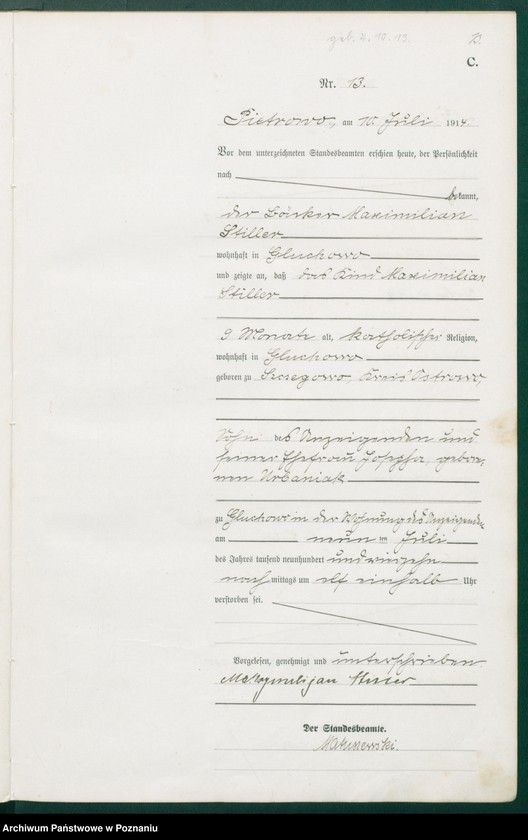 geb. 4.10.13.
13.
C.
Nr. 13.
Pietrowo, am 10. Juli 1914.
Vor dem unterzeichneten Standesbeamten erschien heute, der Persönlichkeit
nach
bekannt,
der Bäcker Maximilian
Stiller
wohnhaft in Gluchowo
und zeigte an, daß das Kind Maximilian
Stiller
9 Monate alt, katholischer Religion,
wohnhaft in Gluchowo
geboren zu Kreis Ostrowo,
Sohn des Anzeigenden und
seiner Ehefrau Josepha, gebore-
nen Urbaniak
zu Gluchowo in der Wohnung des Anzeigenden
am neunten Juli
des Jahres tausend neunhundert und vierzehn
nach mittags um elf einhalb Uhr
verstorben sei.
Vorgelesen, genehmigt und unterschrieben
Maksymilijan Stiller
Der Standesbeamte.
Archiwum Państwowe w Poznaniu